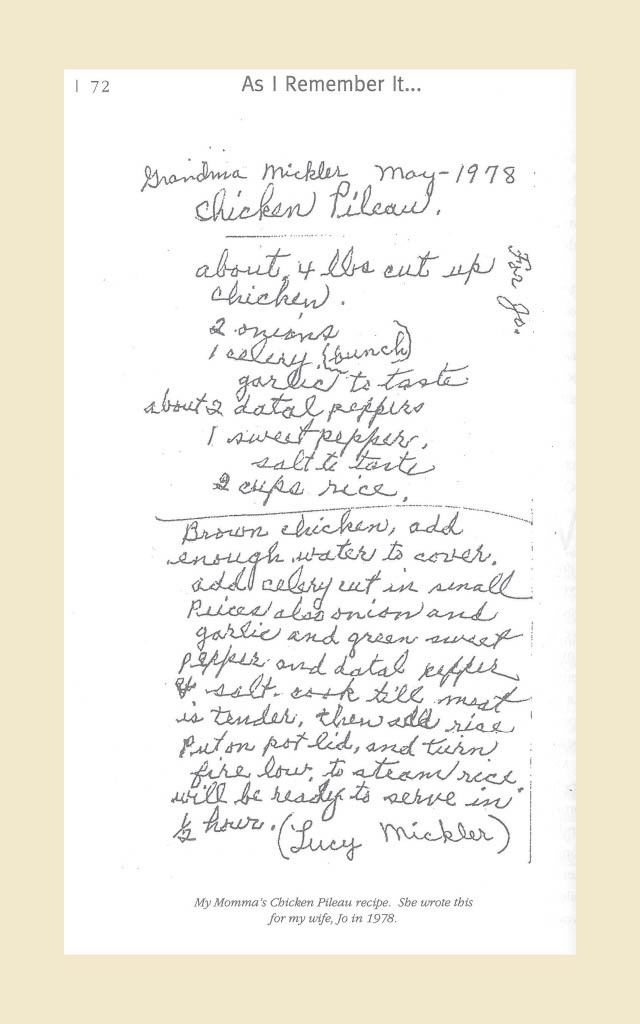 | 72
As I Remember It...
Grandma Mickler May-1978
Chicken Pileau.
For Jo.
about 4 lbs cut up
chicken.
2 onions
1 celery (bunch)
garlic to taste
about 2 datal peppers
1 sweet pepper,
salt to taste
2 cups rice.
Brown chicken, add
enough water to cover.
add celery cut in small
Peices also onion and
garlic and green sweet
pepper and datal pepper
& salt. cook till meat
is tender, then add rice
Put on pot lid, and turn
fire low, to steam rice.
will be ready to serve in
1/2 hour. (Lucy Mickler)
My Momma's Chicken Pileau recipe. She wrote this
for my wife, Jo in 1978.